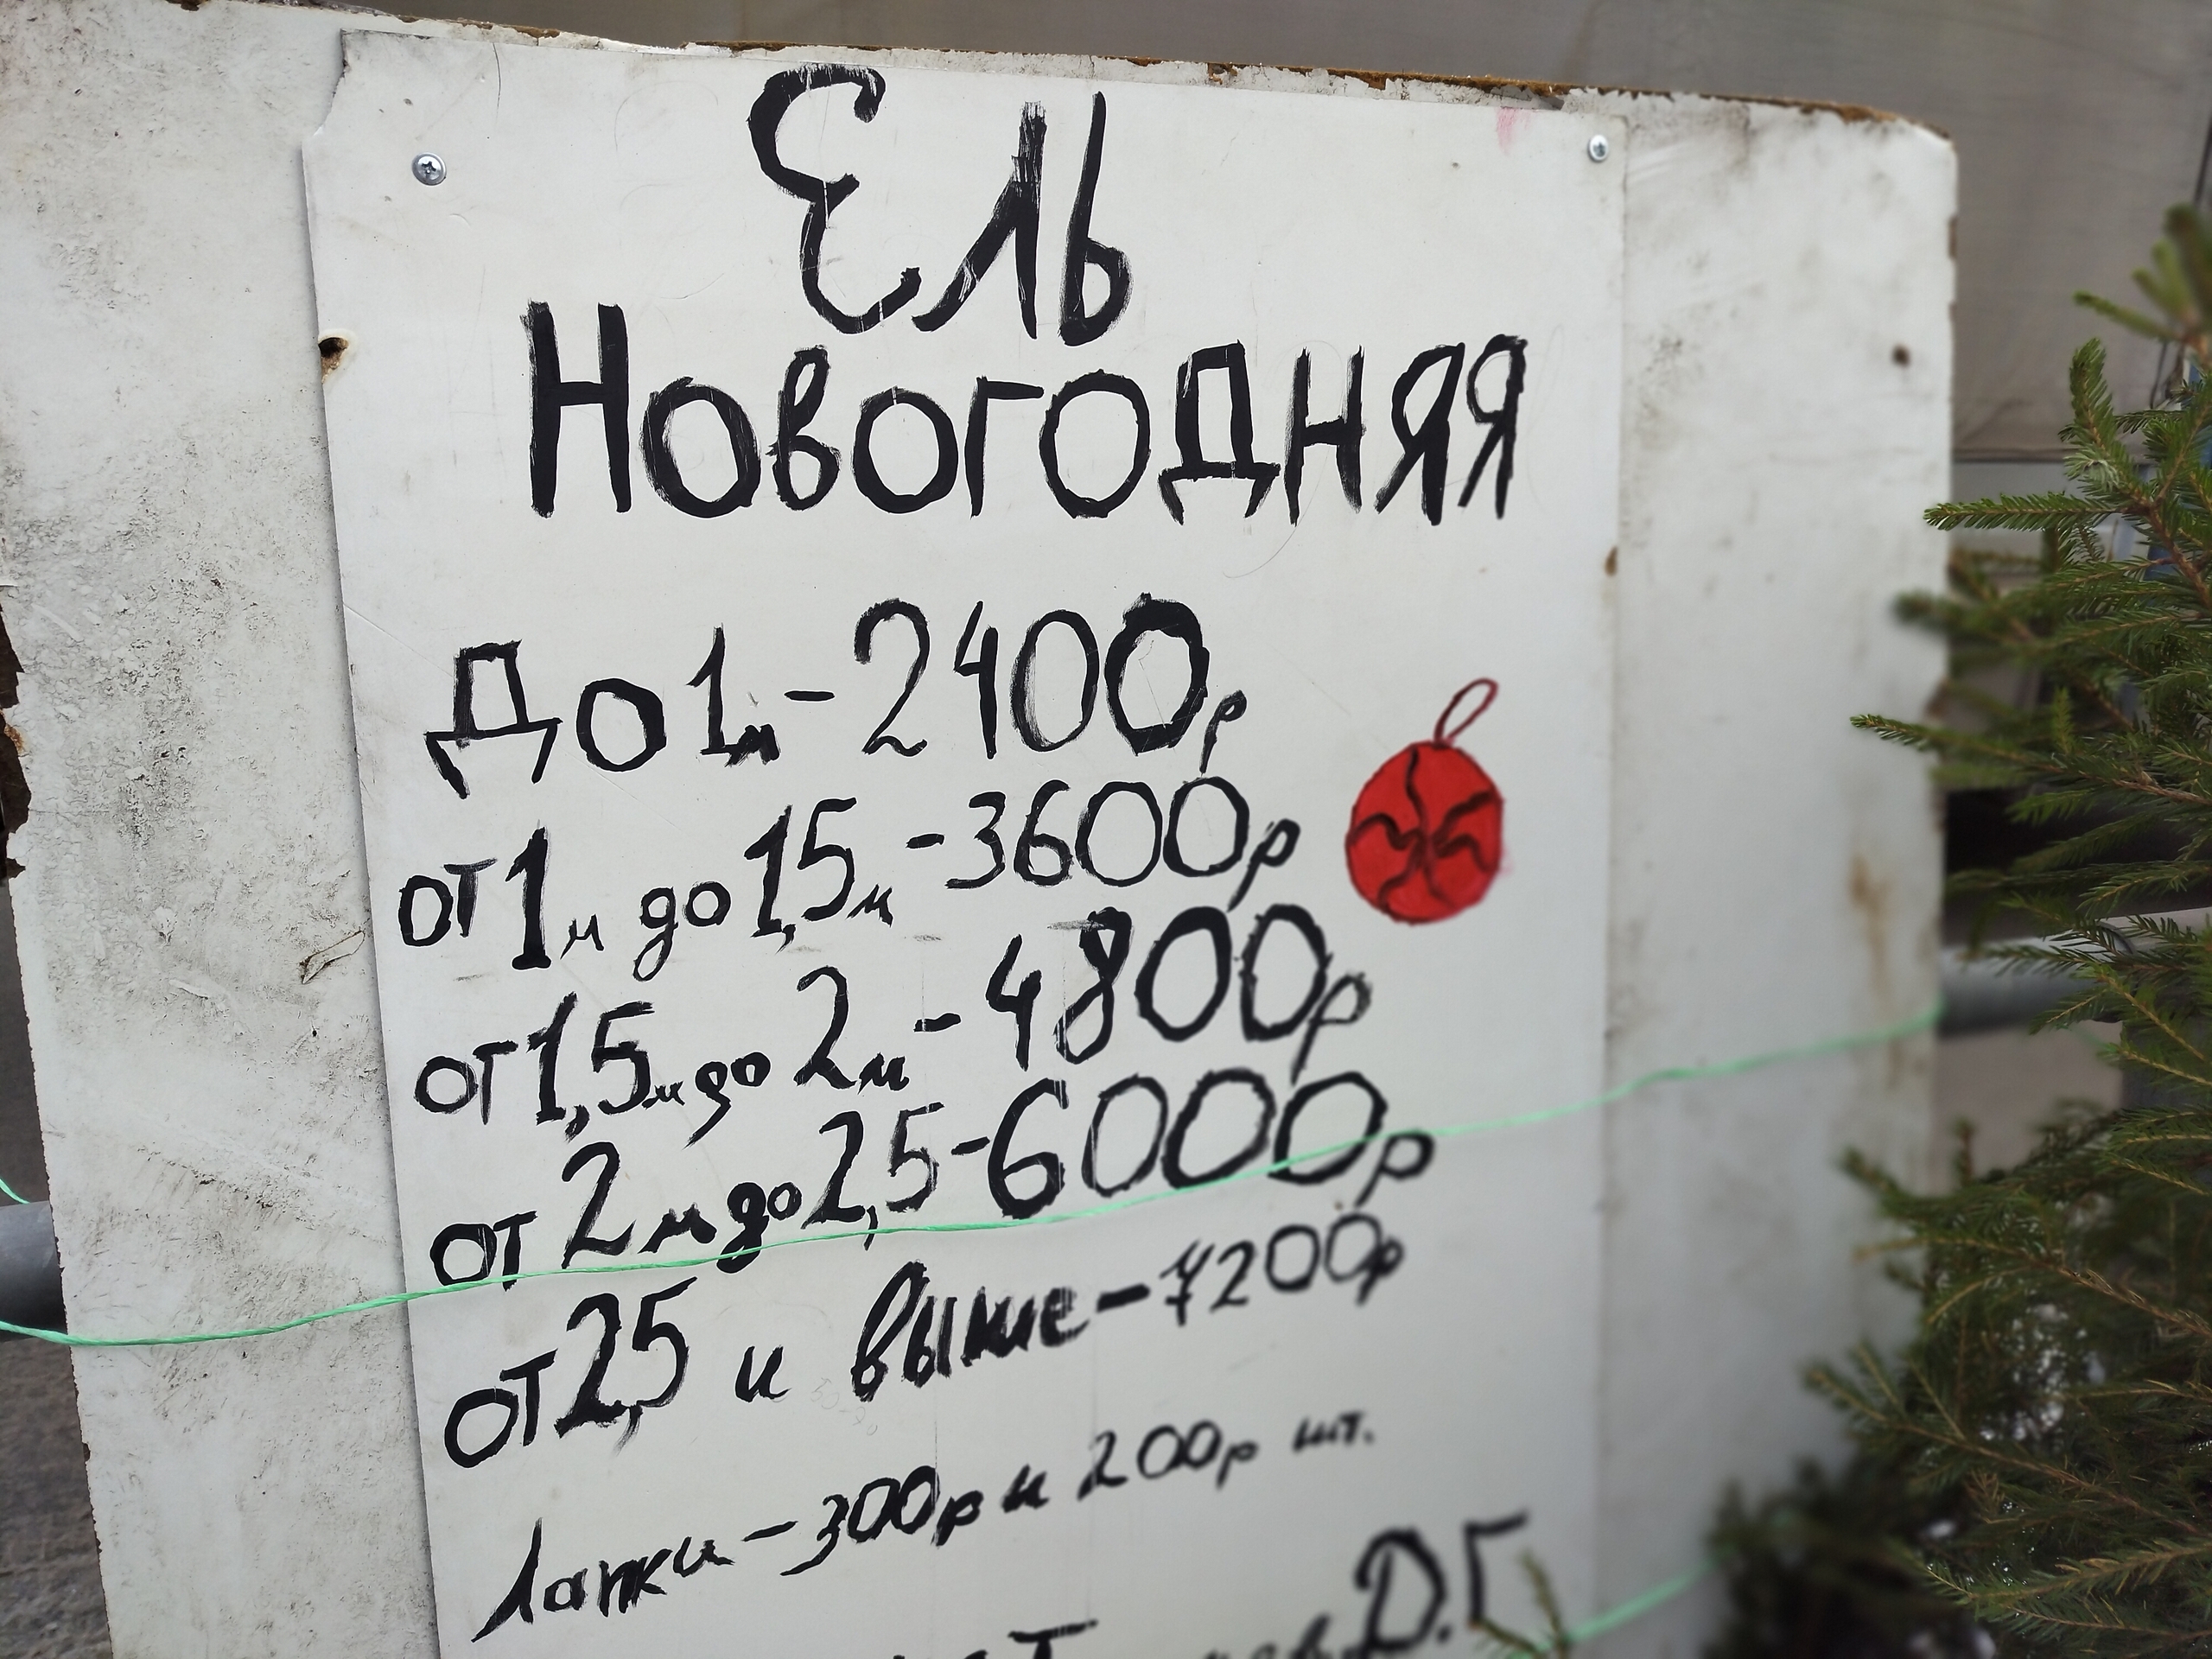 Ель
Новогодняя
До 1м - 2400р
от 1м до 1,5м - 3600р
от 1,5м до 2м - 4800р
от 2м до 2,5 - 6000р
от 2,5 и выше - 7200р
Лапки - 300р и 200р шт.
Д.Г